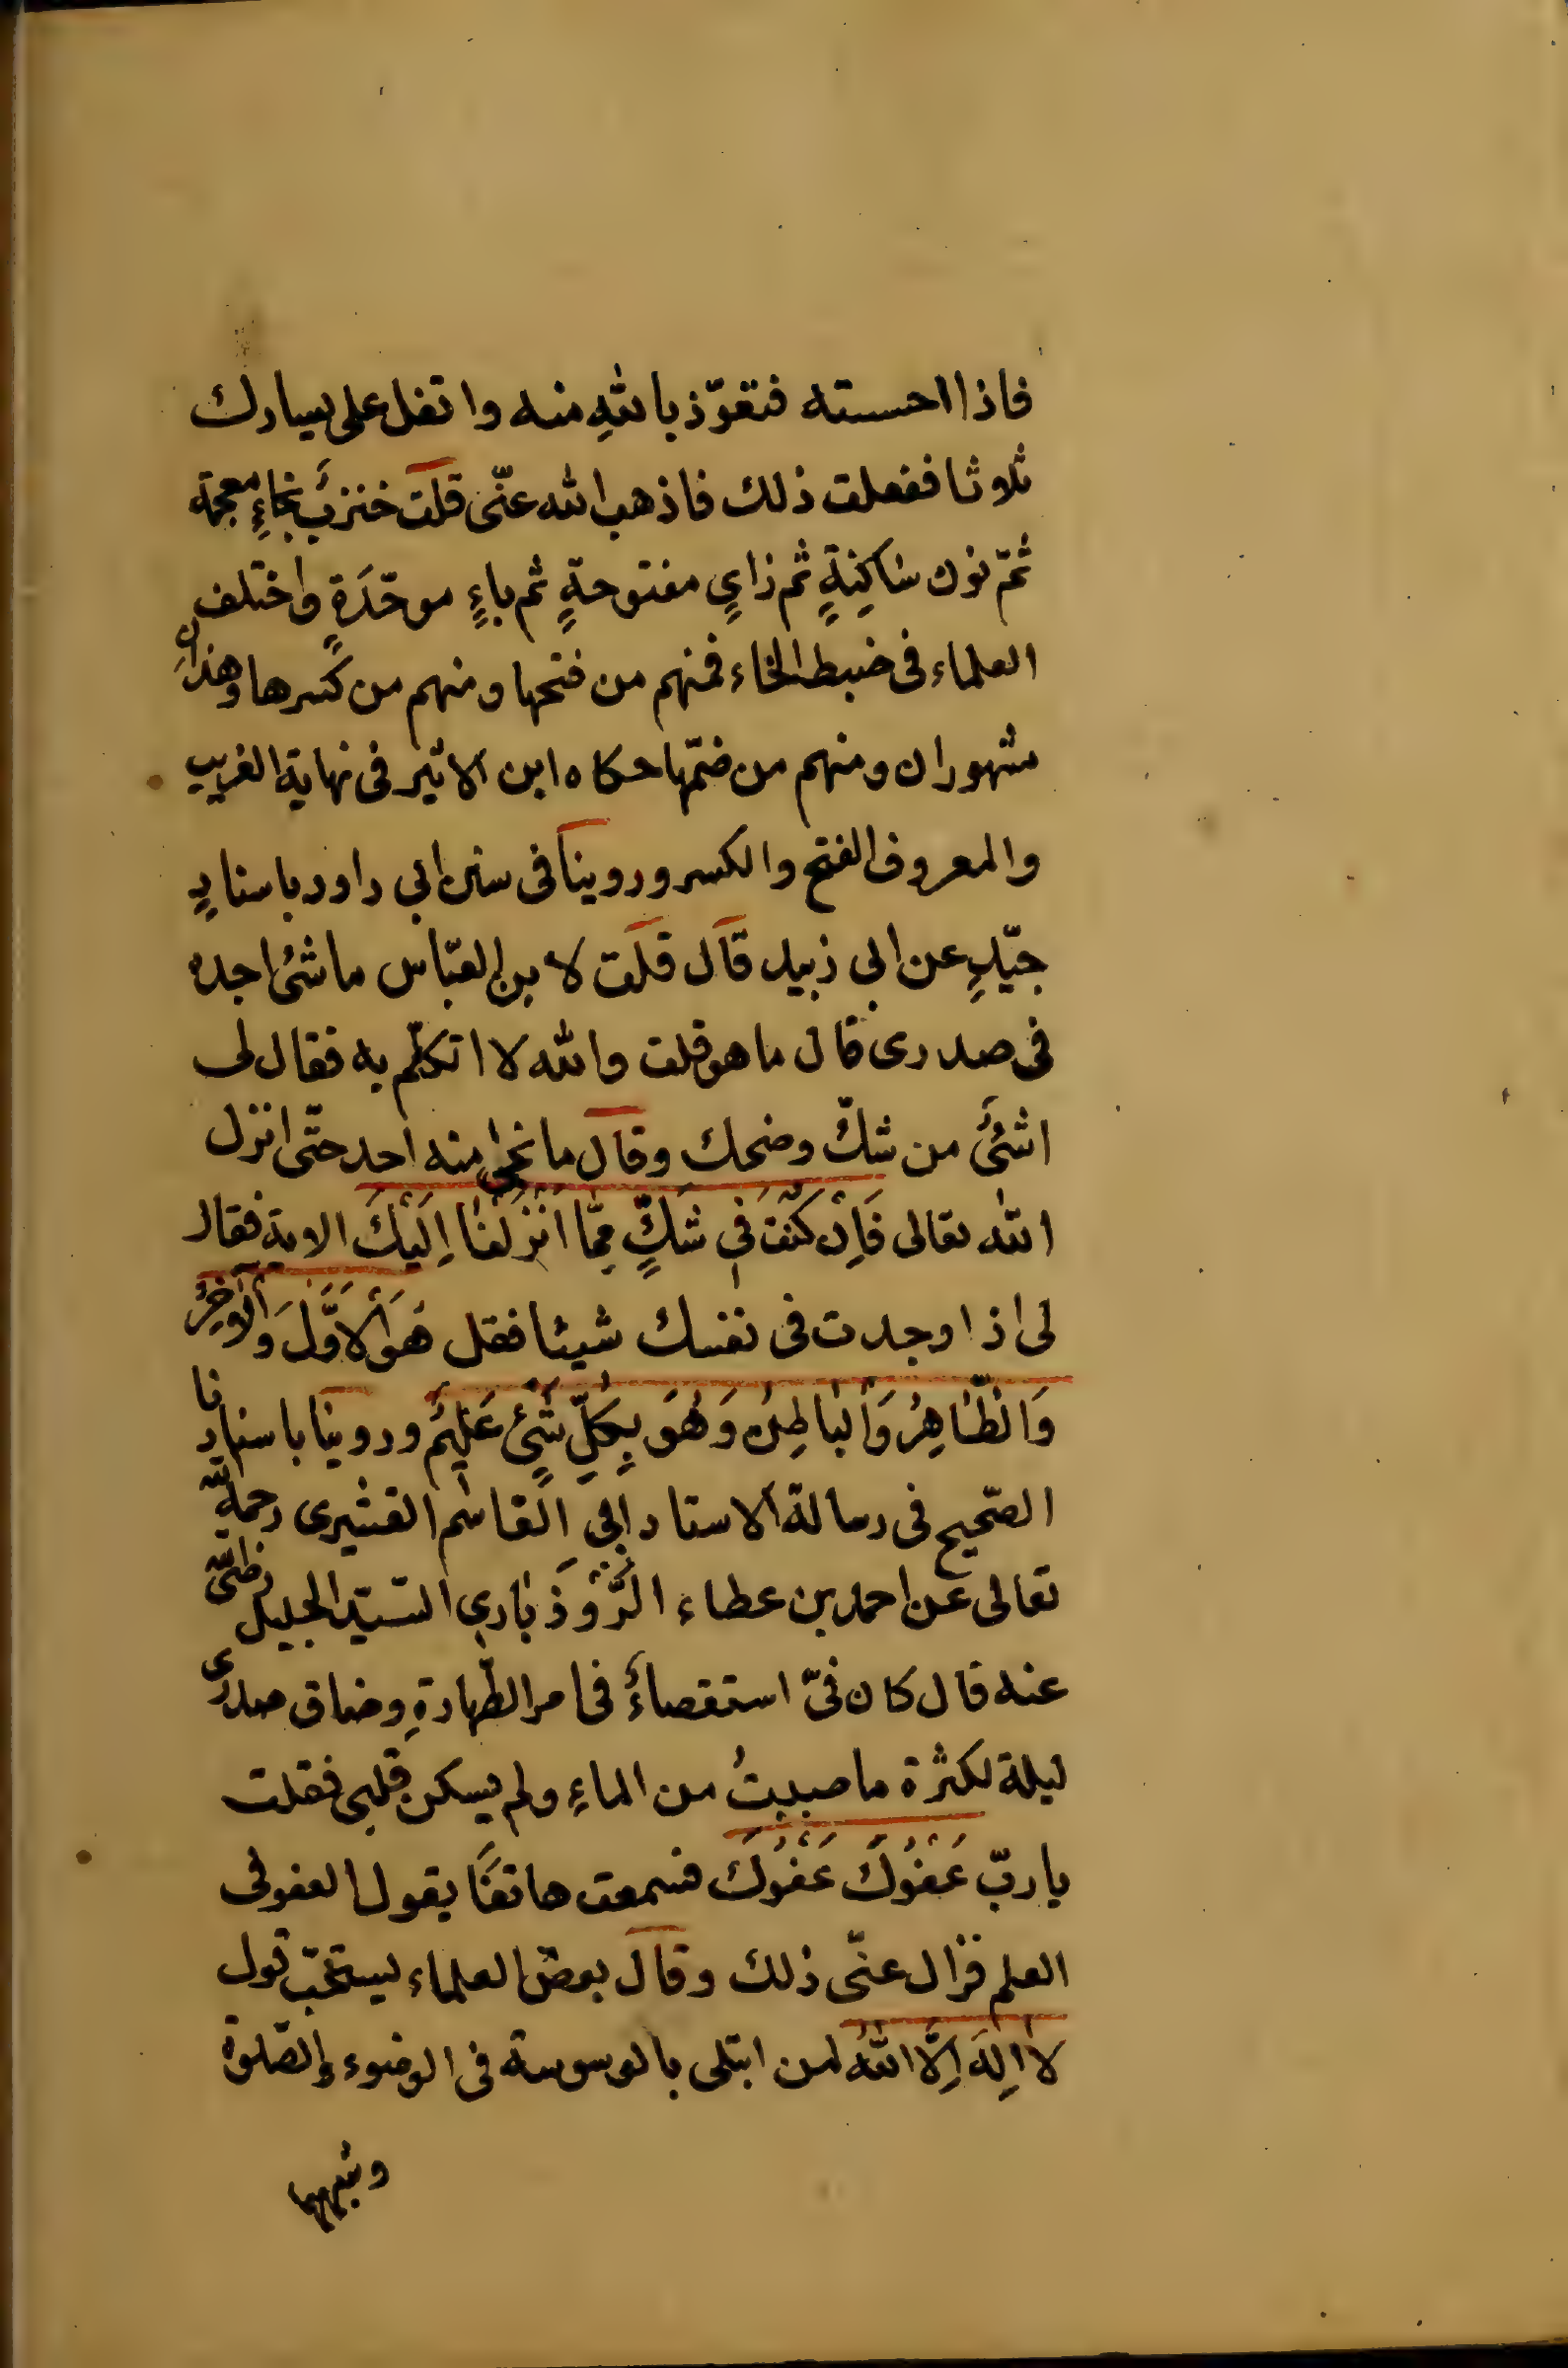 فاذا احسته فتعوّذ باللهِ منه واتفل على يسارك
ثلاثا ففعلت ذلك فاذهب الله عنّى قلت خنزبٌ بخاءٍ معجمة
ثمّ نون ساكِنةٍ ثم زايٍ مفتوحةٍ ثم باءٍ موحّدَةٍ واختلف
العلماء فى ضبط الخاء فمنهم من فتحها ومنهم من كسرها وهذانِ
مشهوران ومنهم من ضمّها حكاه ابن الاثير فى نهاية الغريب
والمعروف الفتح والكسر وروينا فى سنن ابى داود باسنادٍ
جيّدٍ عن ابى زبيل قال قلت لابن العبّاس ما شئ اجده
فى صدرى قال ما هو قلت والله لا اتكلّم به فقال لى
اشئَ من شكّ وضحك وقال ما نجى منه احد حتّى انزل
الله تعالى فَاِنْ كُنْتَ فِى شَكٍّ مِمَّا اَنْزَلْنَا اِلَيْكَ الاية فقال
لى اذا وجدت فى نفسك شيئا فقل هُوَ الْاَوَّلُ وَالْاٰخِرُ
وَالظَّاهِرُ وَالْبَاطِنُ وَهُوَ بِكُلِّ شَيْءٍ عَلِيمٌ وروينا باسنادنا
الصّحيح فى رسالة الاستاد ابى القاسم القشيرى رحمه الله
تعالى عن احمد بن عطاء الرُّوذْبَارِى السّيّد الجليل رضى الله
عنه قال كان فىّ استقصاءٌ فى امر الطّهارةِ وضاق صدرى
ليلة لكثرة ما صببتُ من الماءِ ولم يسكن قلبى فقلت
يا ربّ عَفْوُكَ عَفْوُكَ فسمعت هاتفًا يقول العفو فى
العلم فزال عنّى ذلك وقال بعض العلماء يستحبّ قول
لا اِلٰهَ اِلَّا اللّٰهُ لمن ابتلى بالوسوسة فى الوضوء والصّلوة